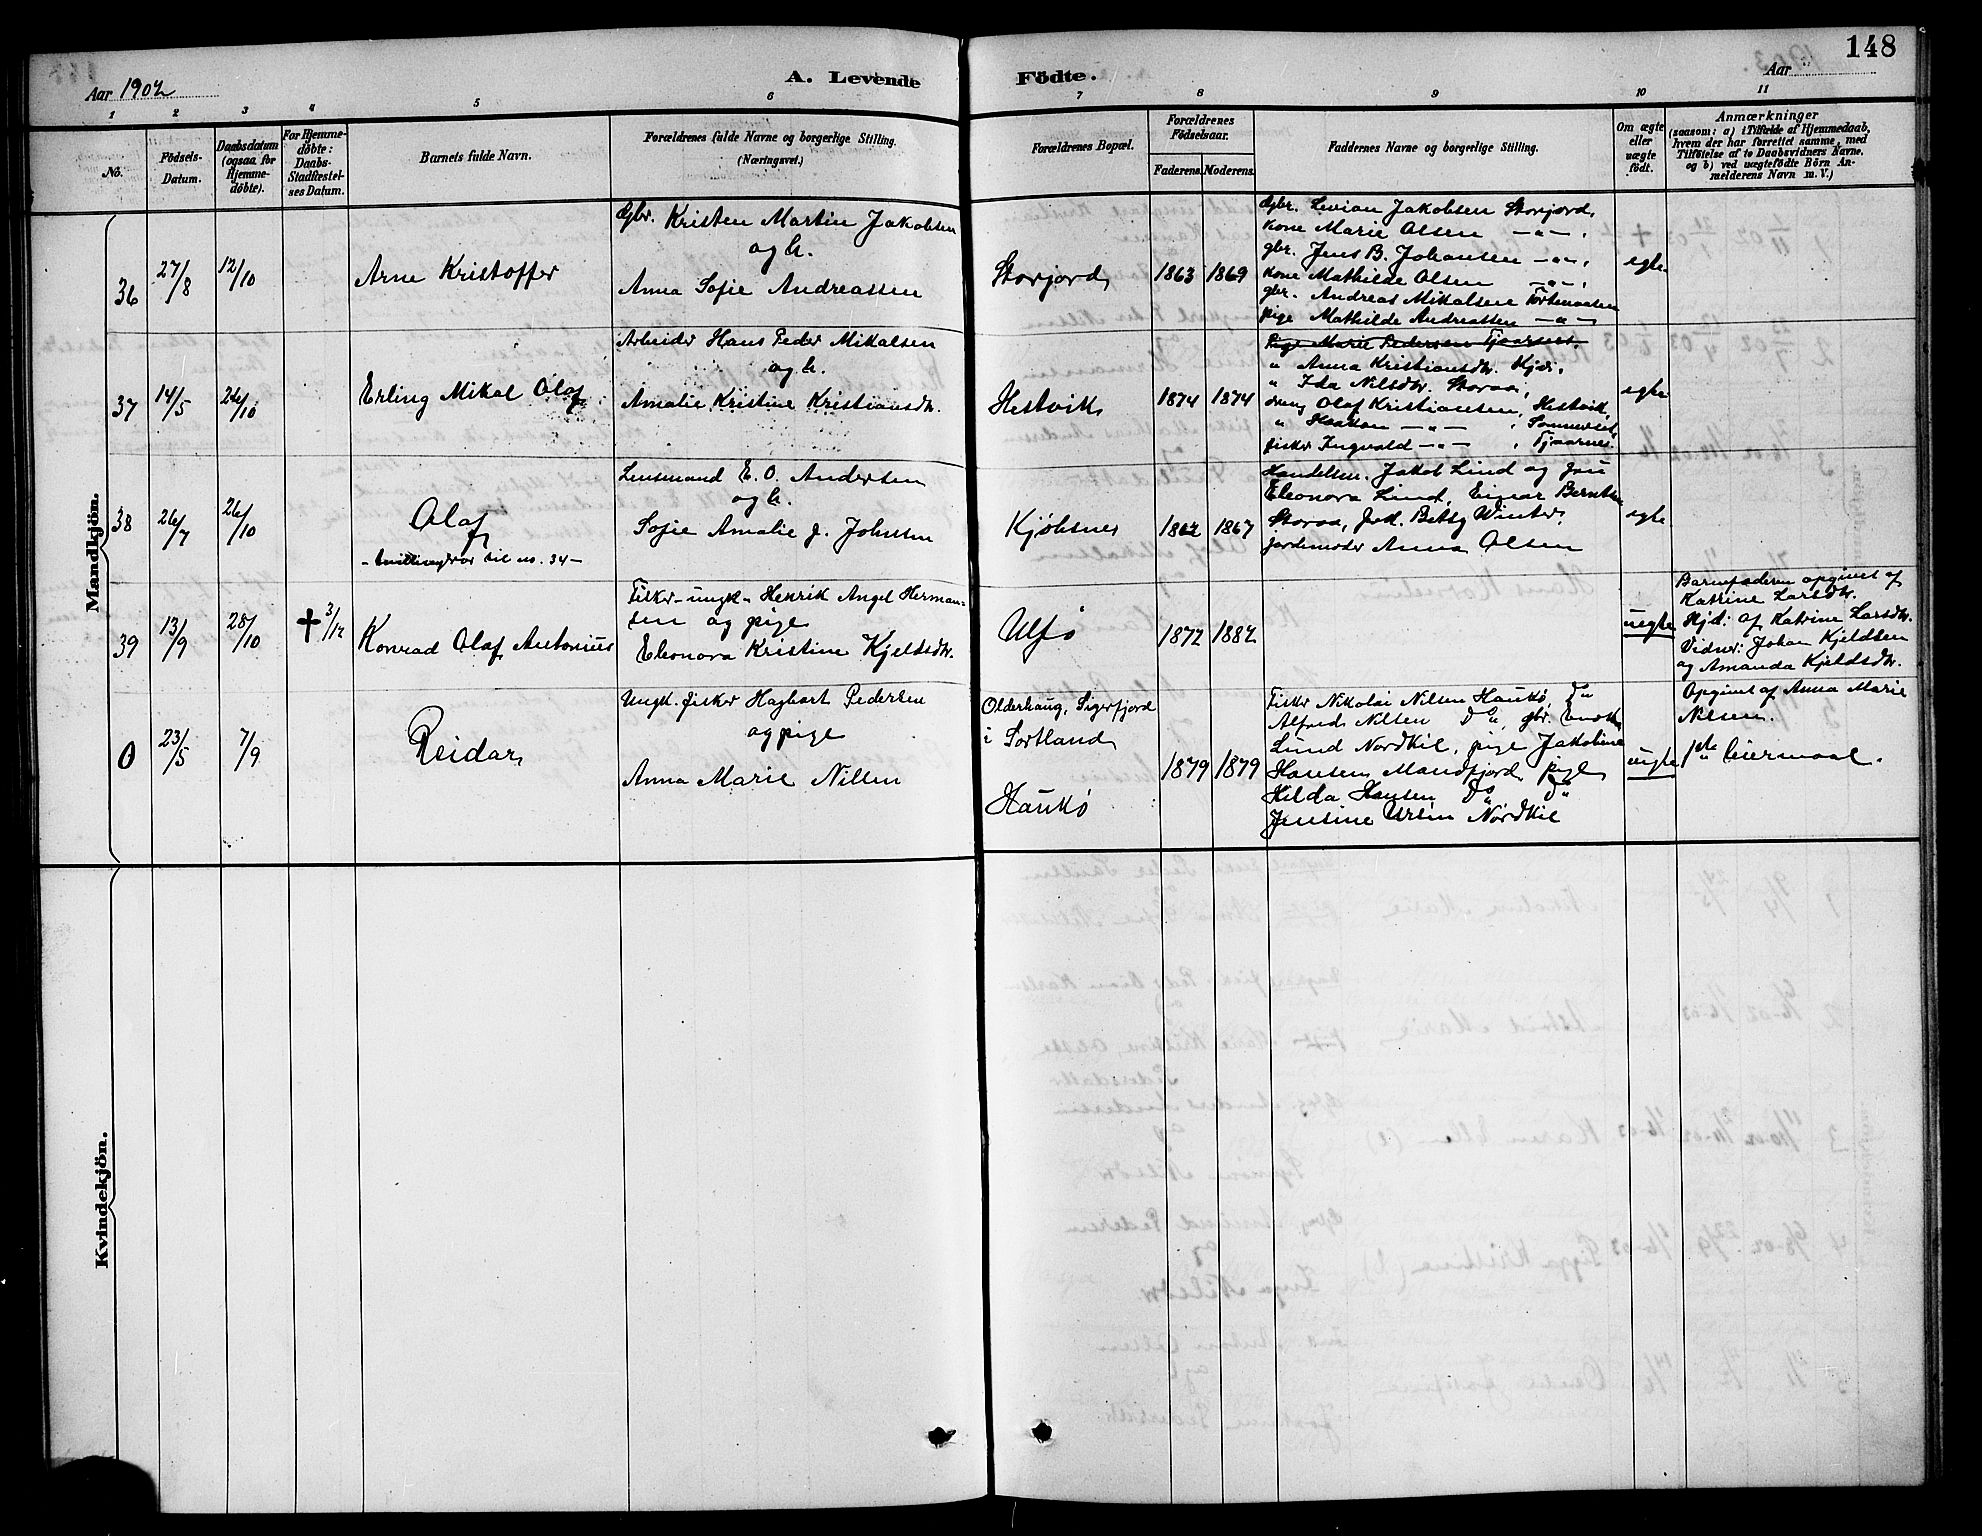 148
Aar 1902
A. Levende Födte.
Aar
1 2 3 4 5 6 7 8 9 10 11
No.
Födsels-Datum.
Daabsdatum (ogsaa for Hjemme-döbte).
For Hjemme-döbte: Daabs-Stadfæstelses Datum.
Barnets fulde Navn.
Forældrenes fulde Navne og borgerlige Stilling. (Næringsvei.)
Forældrenes Bopæl.
Forældrenes Födselsaar.
Faderens. Moderens.
Faddernes Navne og borgerlige Stilling.
Om ægte eller uægte födt.
Anmærkninger
(saasom: a) i Tilfælde af Hjemmedaab,
hvem der har forrettet samme, med
Tilföielse af to Daabsvidners Navne.
og b) ved uægtefödte Börn An-
melderens Navn m. V.)
Mandkjön.
36 27/8 12/10 Arne Kristoffer
Gbr. Kristen Martin Jakobsen
og h.
Anna Sofie Andreassen
Storjord 1863 1869
Gbr. Levian Jakobsen Storjord,
kone Marie Olsen —"—,
gbr. Jens B. Johansen —"—,
kone Mathilde Olsen —"—,
gbr. Andreas Mikalsen
pige Mathilde Andreassen —"—
egte
37 14/5 26/10 Erling Mikal Olaf
Arbeider Hans Peder Mikalsen
og h.
Amalie Kristine Kristiansdtr.
Hestvik 1874 1874
Pige Marie Pedersen Tjaarnes.
" Anna Kristiansdtr.
" Ida Nilsdtr. Storaa,
dreng Olaf Kristiansen, Hestvik,
" Haakon —"—, Sommerset,
fisker Ingvald —"—, Tjaarnes.
egte
38 26/7 26/10 Olaf
- tvillingbror til no. 34 -
Lensmand E. O. Andersen
og h.
Sofie Amalie f. Johnsen
Kjöbsnes 1862 1867
Handelsm. Jakob Lind og fru
Eleonora Lind, Einar Berntsen
Storaa, frk. Betty Winter,
jordemoder Anna Olsen
egte
39 13/9 28/10 ✝ 3/12 Konrad Olaf Antonius
Fisker-ungk. Henrik Angel Herman-
sen og pige
Eleonora Kristine Kjeldsdtr.
Ulfö 1872 1882
uegte
Barnefaderen opgivet af
Katrine Larsdtr.
Hjd: af Katrine Larsdtr.
Vidner: Johan Kjeldsen
og Amanda Kjeldsdtr.
0 23/5 7/9 Reidar
Ungk. fisker Hagbart Pedersen
og pige
Anna Marie Nilsen
Olderhaug, Sigerfjord
i Sortland
Haukö
1879 1879
Fisker Nikolai Nilsen Haukö,
Alfred Nilsen Do, gbr. Enok
Lund Nordkil, pige Jakobine
Hansen, Mandfjord, pige
Hilda Hansen Do
Jensine Nordkil
uegte
Opgivet af Anna Marie
Nilsen.
1ste leiermaal.
Kvindekjön.